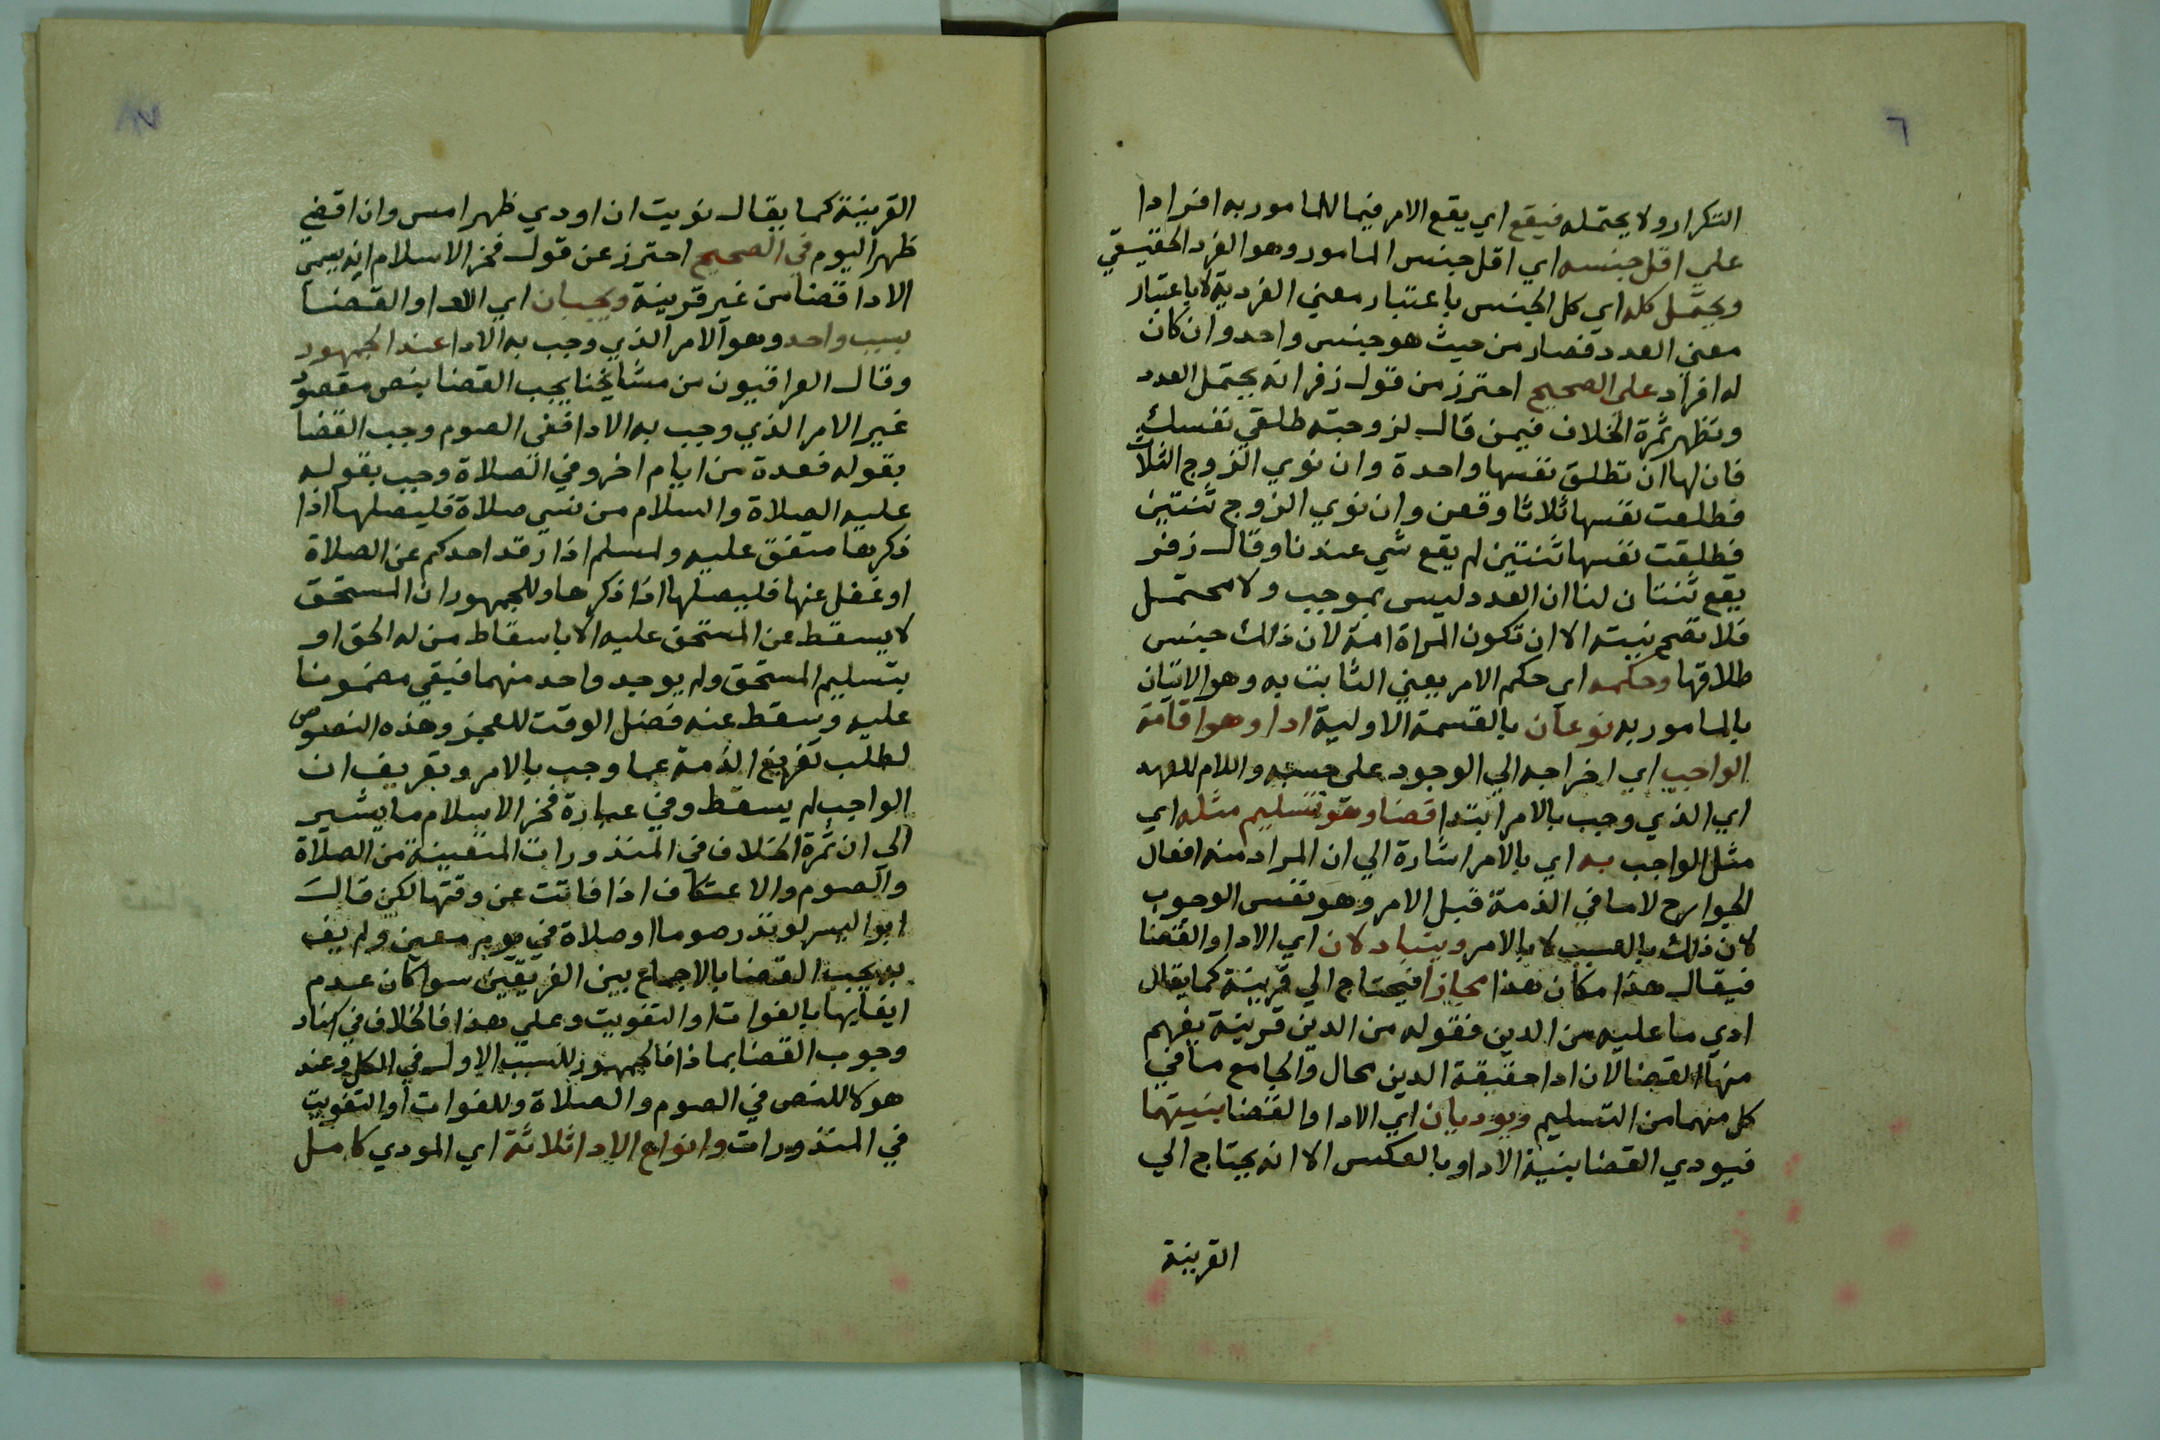 ٦
التكرار ولا يحتمله فيقع اي يقع الامر فيما للمامور به افرادا
علي اقل جنسه اي اقل جنس المامور وهو الفرد الحقيقي
ويحتمل كله اي كل الجنس باعتبار معني الفردية لا باعتبار
معني العدد فصار من حيث هو جنس واحد وان كان
له افراد على الصحيح احترز من قول زفر انه يحتمل العدد
وتظهر ثمرة الخلاف فيمن قال لزوجته طلقي نفسك
فان لها ان تطلق نفسها واحدة وان نوي الزوج الثلاث
فطلقت نفسها ثلاثا وقعن وان نوي الزوج ثنتين
فطلقت نفسها ثنتين لم يقع شي عندنا وقال زفر
يقع ثنتان لنا ان العدد ليس بموجب ولا محتمل
فلا تصح نيته الا ان تكون المراة امة لان ذلك جنس
طلاقها وحكمه اي حكم الامر يعني الثابت به وهو الاتيان
بالمامور به نوعان بالقسمة الاولية ادا وهو اقامة
الواجب اي اخراجه الي الوجود على حسبه واللام للعهد
اي الذي وجب بالامر ابتدا قضا وهو تسليم مثله اي
مثل الواجب به اي بالامر اشارة الي ان المراد منه افعال
الجوارح لا ما في الذمة قبل الامر وهو نفس الوجوب
لان ذلك بالسبب لا بالامر ويتبادلان اي الادا والقضا
فيقال هذا مكان هذا مجازا فيحتاج الي قرينة كما يقال
ادي ما عليه من الدين فقوله من الدين قرينة يفهم
منها القضا لان ادا حقيقة الدين محال والجامع ما في
كل منهما من التسليم ويوديان اي الادا والقضا بنيتهما
فيودي القضا بنية الادا وبالعكس الا انه يحتاج الي
القرينة
القرينة كما يقال نويت ان اودي ظهر امس وان اقضي
ظهر اليوم في الصحيح احترز عن قول فخر الاسلام انه يسمي
الادا قضا من غير قرينة ويجبان اي الادا والقضا
بسبب واحد وهو الامر الذي وجب به الادا عند الجمهور
وقال العراقيون من مشايخنا يجب القضا بنص مقصود
غير الامر الذي وجب به الادا ففي الصوم وجب القضا
بقوله فعدة من ايام اخر وفي الصلاة وجب بقوله
عليه الصلاة والسلام من نسي صلاة فليصلها اذا
ذكرها متفق عليه ولمسلم اذا رقد احدكم عن الصلاة
او غفل عنها فليصلها اذا ذكرها وللجمهور ان المستحق
لا يسقط عن المستحق عليه الا باسقاط من له الحق او
بتسليم المستحق ولم يوجد واحد منهما فيبقي مضمونا
عليه وسقط عنه فضل الوقت للعجز وهذه النصوص
لطلب تفريغ الذمة عما وجب بالامر وتعريف ان
الواجب لم يسقط وفي عبارة فخر الاسلام ما يشير
الى ان ثمرة الخلاف في المنذورات المتعينة من الصلاة
والصوم والاعتكاف اذا فاتت عن وقتها لكن قال
ابو اليسر لو نذر صوما او صلاة في يوم معين ولم يف
به يجب القضا بالاجماع بين الفريقين سوا كان عدم
ايفايها بالفوات او التفويت وعلي هذا فالخلاف في اسناد
وجوب القضا بماذا فالجمهور للسبب الاول في الكل وعند
هولا للنص في الصوم والصلاة وللفوات او التفويت
في المنذورات وانواع الادا ثلاثة اي المودي كامل